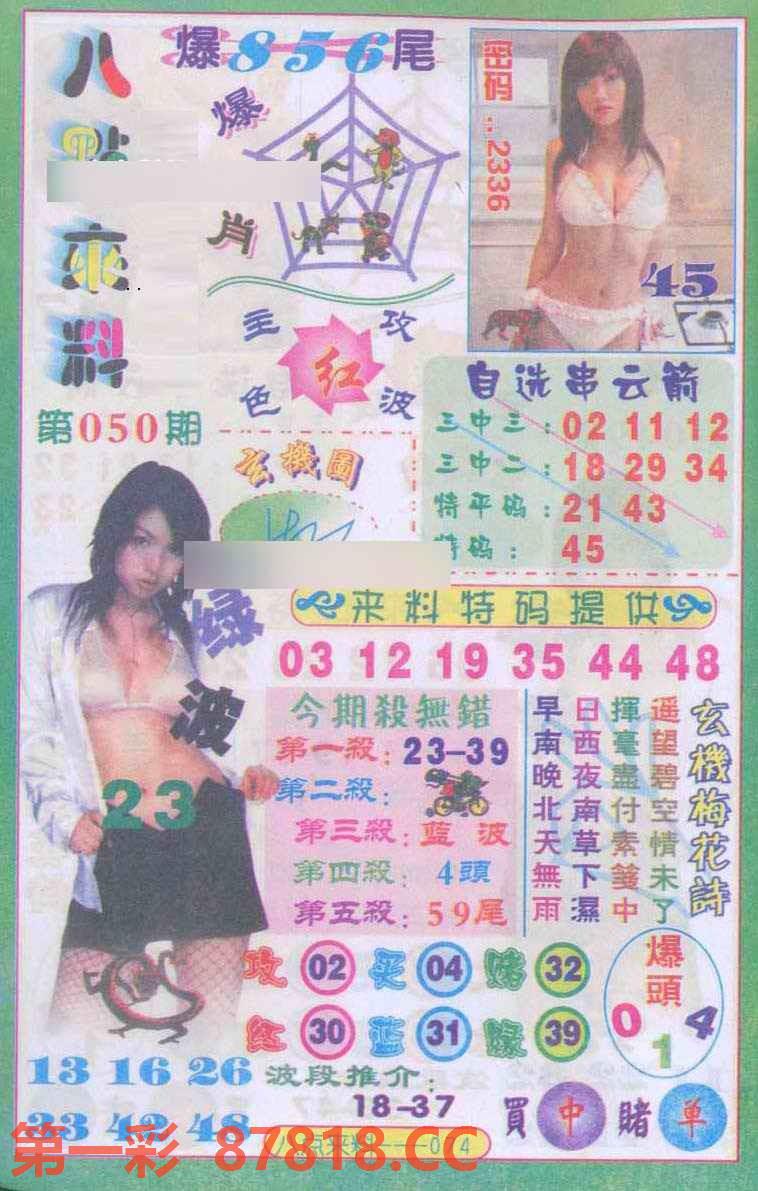 八點來料
爆856尾
爆肖
密码：2336
45
主攻
红
色波
第050期
自选串云箭
三中三：02 11 12
三中二：18 29 34
特平码：21 43
特码：45
玄機圖
来料特码提供
03 12 19 35 44 48
绿波
23
今期殺無錯
第一殺：23-39
第二殺：
第三殺：藍波
第四殺：4頭
第五殺：59尾
玄機梅花詩
遥望碧空情未了
揮毫盡付素箋中
日西夜南草下濕
早南晚北天無雨
攻02 买04 赌32
红30 蓝31 緑39
爆頭
0 1 4
13 16 26
23 42 48
波段推介：
18-37
買中賭单
第一彩 87818.CC